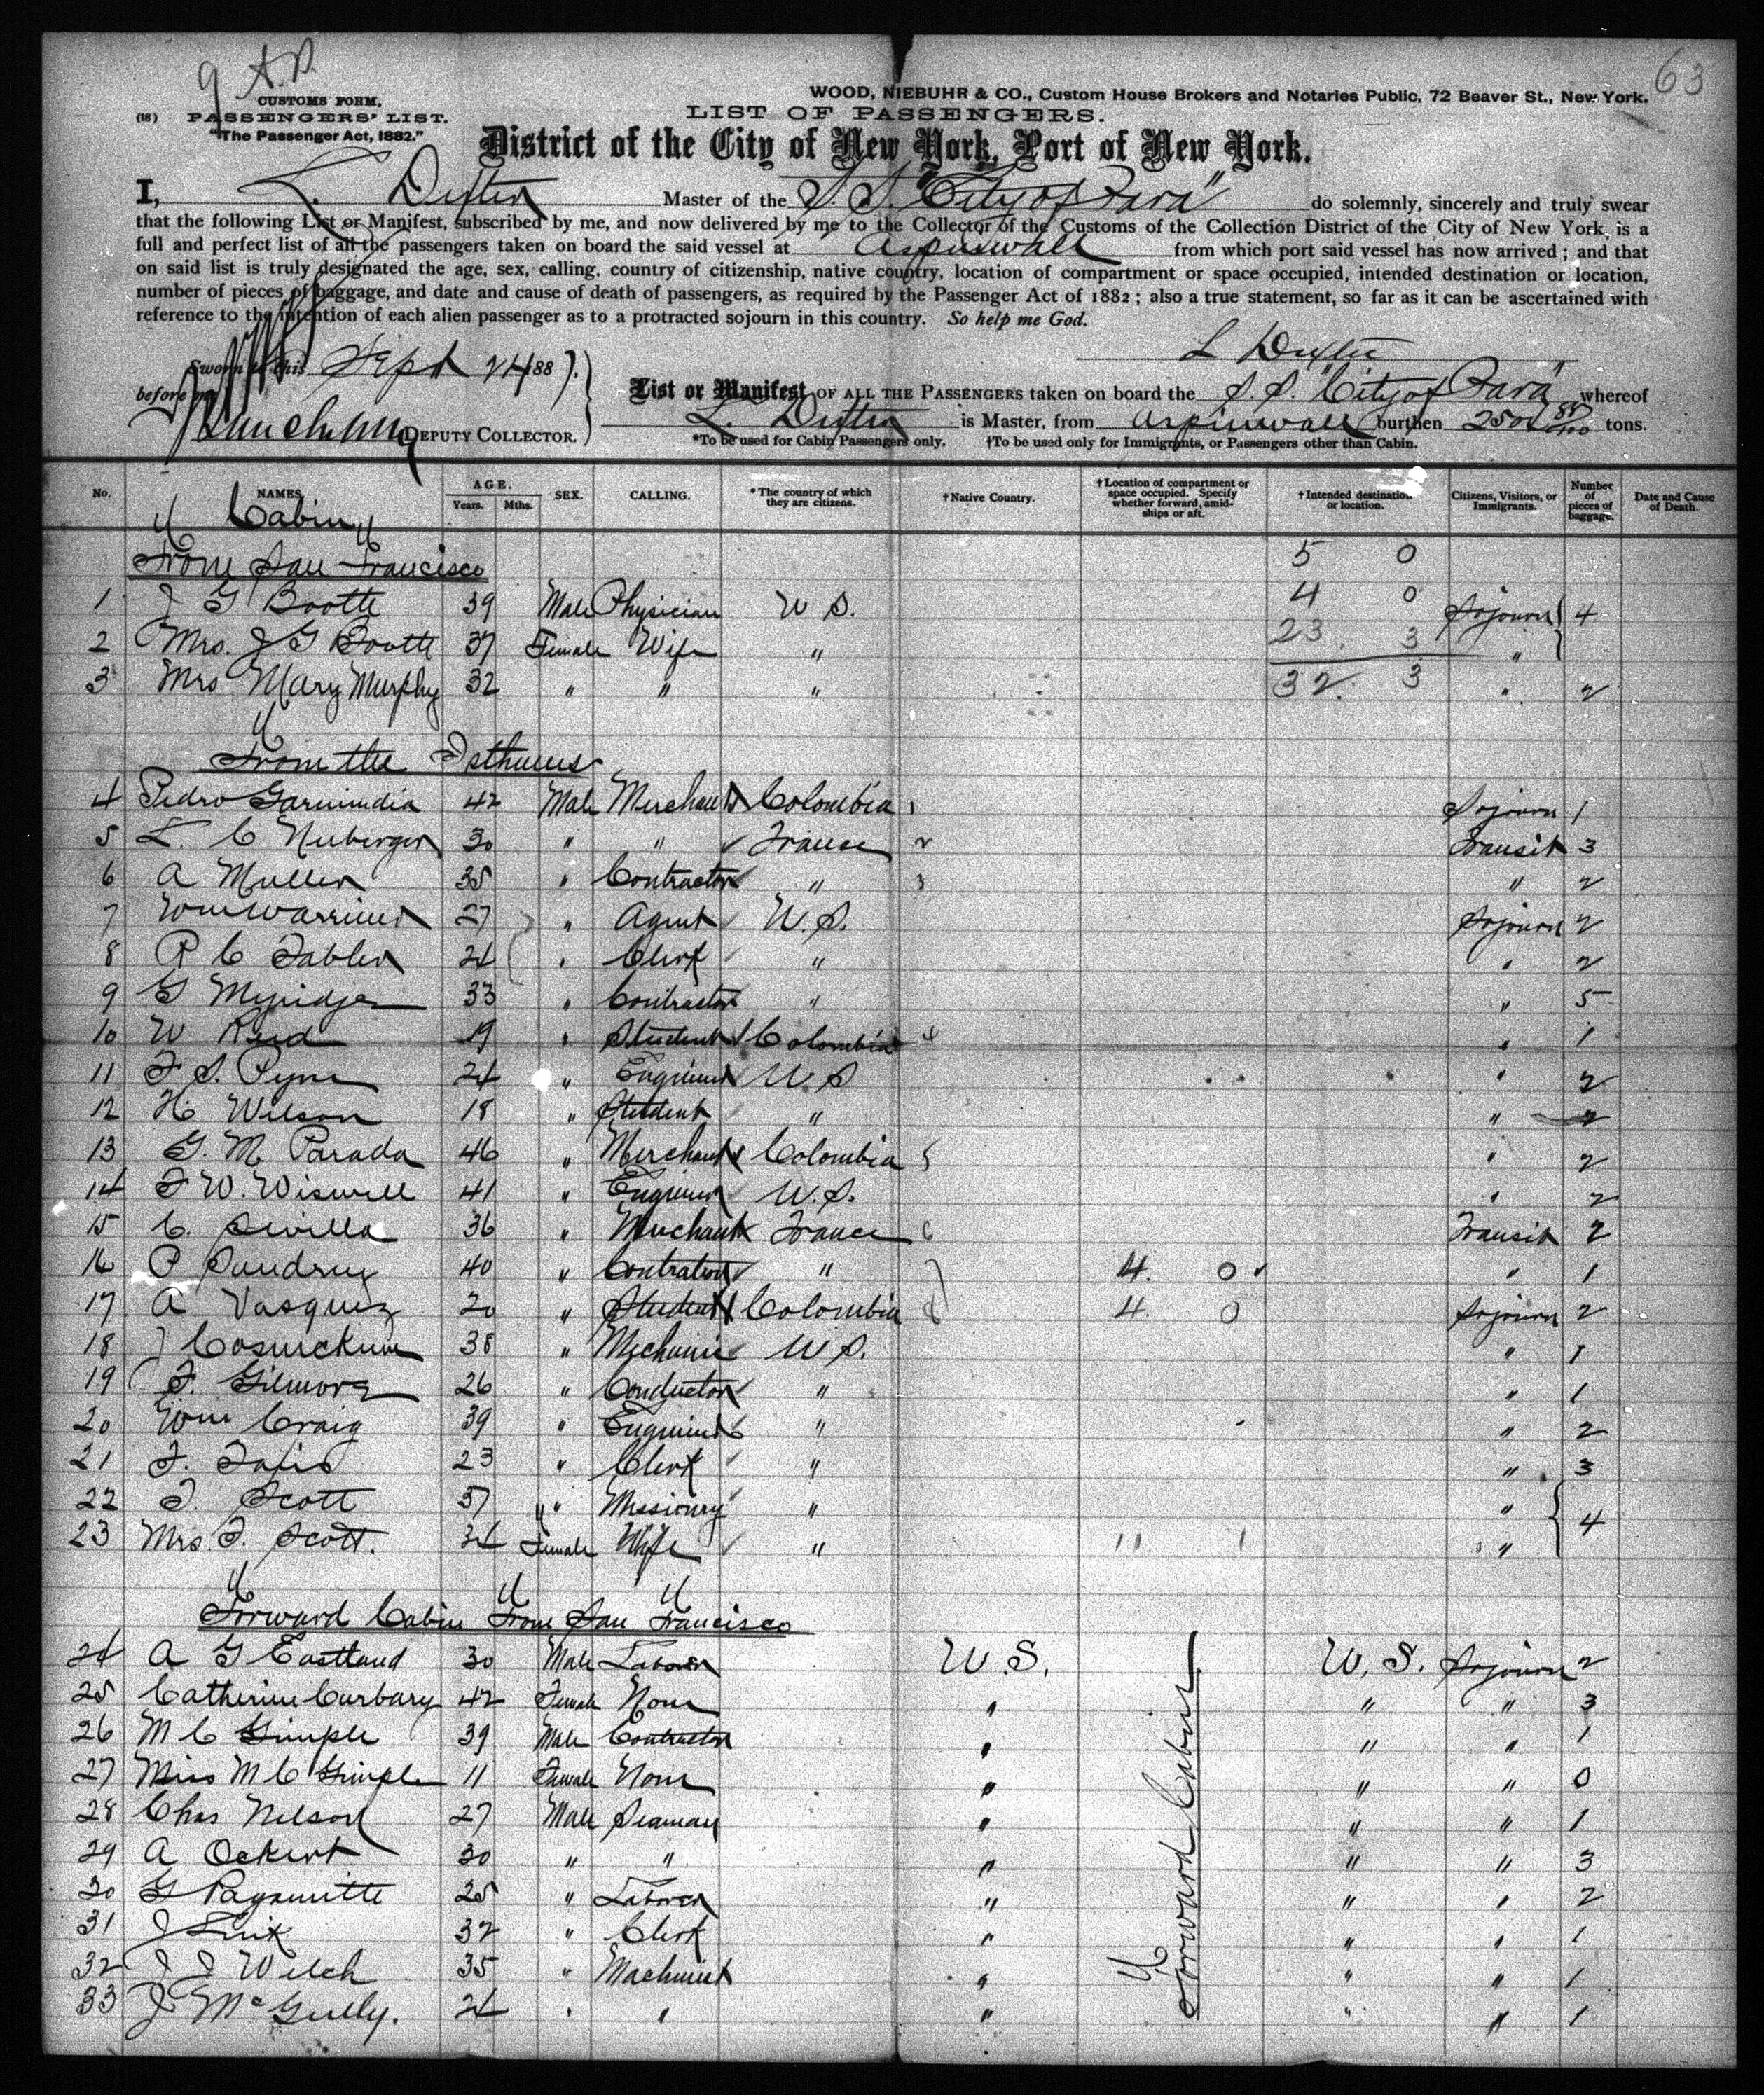 9 A.D. 63
CUSTOMS FORM. WOOD, NIEBUHR & CO., Custom House Brokers and Notaries Public, 72 Beaver St., New York.
(18) PASSENGERS' LIST. LIST OF PASSENGERS.
"The Passenger Act, 1882."
District of the City of New York, Port of New York.
I, L. Dexter Master of the S. S. "City of Para" do solemnly, sincerely and truly swear
that the following List or Manifest, subscribed by me, and now delivered by me to the Collector of the Customs of the Collection District of the City of New York is a
full and perfect list of all the passengers taken on board the said vessel at Aspinwall from which port said vessel has now arrived; and that
on said list is truly designated the age, sex, calling, country of citizenship, native country, location of compartment or space occupied, intended destination or location,
number of pieces of baggage, and date and cause of death of passengers, as required by the Passenger Act of 1882; also a true statement, so far as it can be ascertained with
reference to the intention of each alien passenger as to a protracted sojourn in this country. So help me God.
L Dexter
Sworn to this Sept 24 1887.
before me
DEPUTY COLLECTOR.
List or Manifest OF ALL THE PASSENGERS taken on board the S. S. "City of Para" whereof
L. Dexter is Master, from Aspinwall burthen tons.
*To be used for Cabin Passengers only. †To be used only for Immigrants, or Passengers other than Cabin.
No. NAMES. AGE. Years. Mths. SEX. CALLING. *The country of which they are citizens. †Native Country. †Location of compartment or space occupied. Specify whether forward, amidships or aft. †Intended destination or location. Citizens, Visitors, or Immigrants. Number of pieces of baggage. Date and Cause of Death.
Cabin
From San Francisco 5 0
1 J G Bootte 39 Male Physician U S. 4 0 Sojourn 4
2 Mrs. J G Bootte 37 Female Wife " 23 3 "
3 Mrs Mary Murphy 32 " " " 32. 3 " 2
From the Isthmus
4 Pedro 42 Male Merchant Colombia 1 Sojourn 1
5 L. C Neuberger 30 " " France 2 Transit 3
6 A Muller 35 " Contractor " 3 " 2
7 Wm 27 " Agent U.S. Sojourn 2
8 P C Tabler 24 " Clerk " " 2
9 G 33 " Contractor " " 5
10 W Reid 19 " Student Colombia 4 " 1
11 F S. Pyne 24 " Engineer U S " 2
12 H. Wilson 18 " Student " " 2
13 G. M Parada 46 " Merchant Colombia 5 " 2
14 F W. Wiswell 41 " Engineer U.S. " 2
15 C. Sevilla 36 " Merchant France 6 Transit 2
16 P 40 " Contractor " 7 4. 0 " 1
17 A Vasquez 20 " Student Colombia 8 4. 0 Sojourn 2
18 38 " Mechanic U S. " 1
19 F. Gilmore 26 " Conductor " " 1
20 Wm Craig 39 " Engineer " " 2
21 F. 23 " Clerk " " 3
22 F. Scott 37 " Missionry " " 4
23 Mrs. F. Scott. 34 Female Wife " 11 1 "
Forward Cabin From San Francisco
24 A G Eastland 30 Male Laborer U.S. U.S. Sojourn 2
25 Catherine Carbary 42 Female None " " " 3
26 M C Gimple 39 Male Contractor " " " 1
27 Miss M C Gimple 11 Female None " " " 0
28 Chas Nelson 27 Male Seaman " " " 1
29 A Ockert 30 " " " " " 3
30 G 25 " Laborer " " " 2
31 J Link 32 " Clerk " " " 1
32 J J Welch 35 " Machinist " " " 1
33 J McGully. 24 " " " " " 1
Forward Cabin